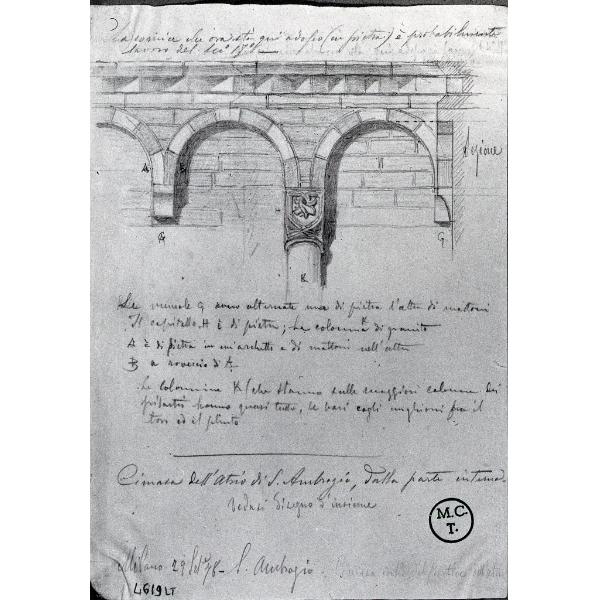 La cornice che ora sta qui adosso (in pietra) è probabilmente
lavoro del Sec° 17°
Sezione
A B
G H G
K
Le mensole G sono alternate una di pietra l'altra di mattoni
Il capitello H è di pietra; La colonna K di granito
A è di pietra in un'archetto e di mattoni nell'altro
B a rovescio d'A
Le colonnine K (che stanno sulle maggiori colonne dei
pilastri hanno quasi tutte, le basi cogli unghioni fra il
toro ed il plinto
Cimasa dell'Atrio di S. Ambrogio, dalla parte interna
Vedasi disegno d'insieme
M.C.
T.
Milano 29 Set 78 - S. Ambrogio
4619 LT